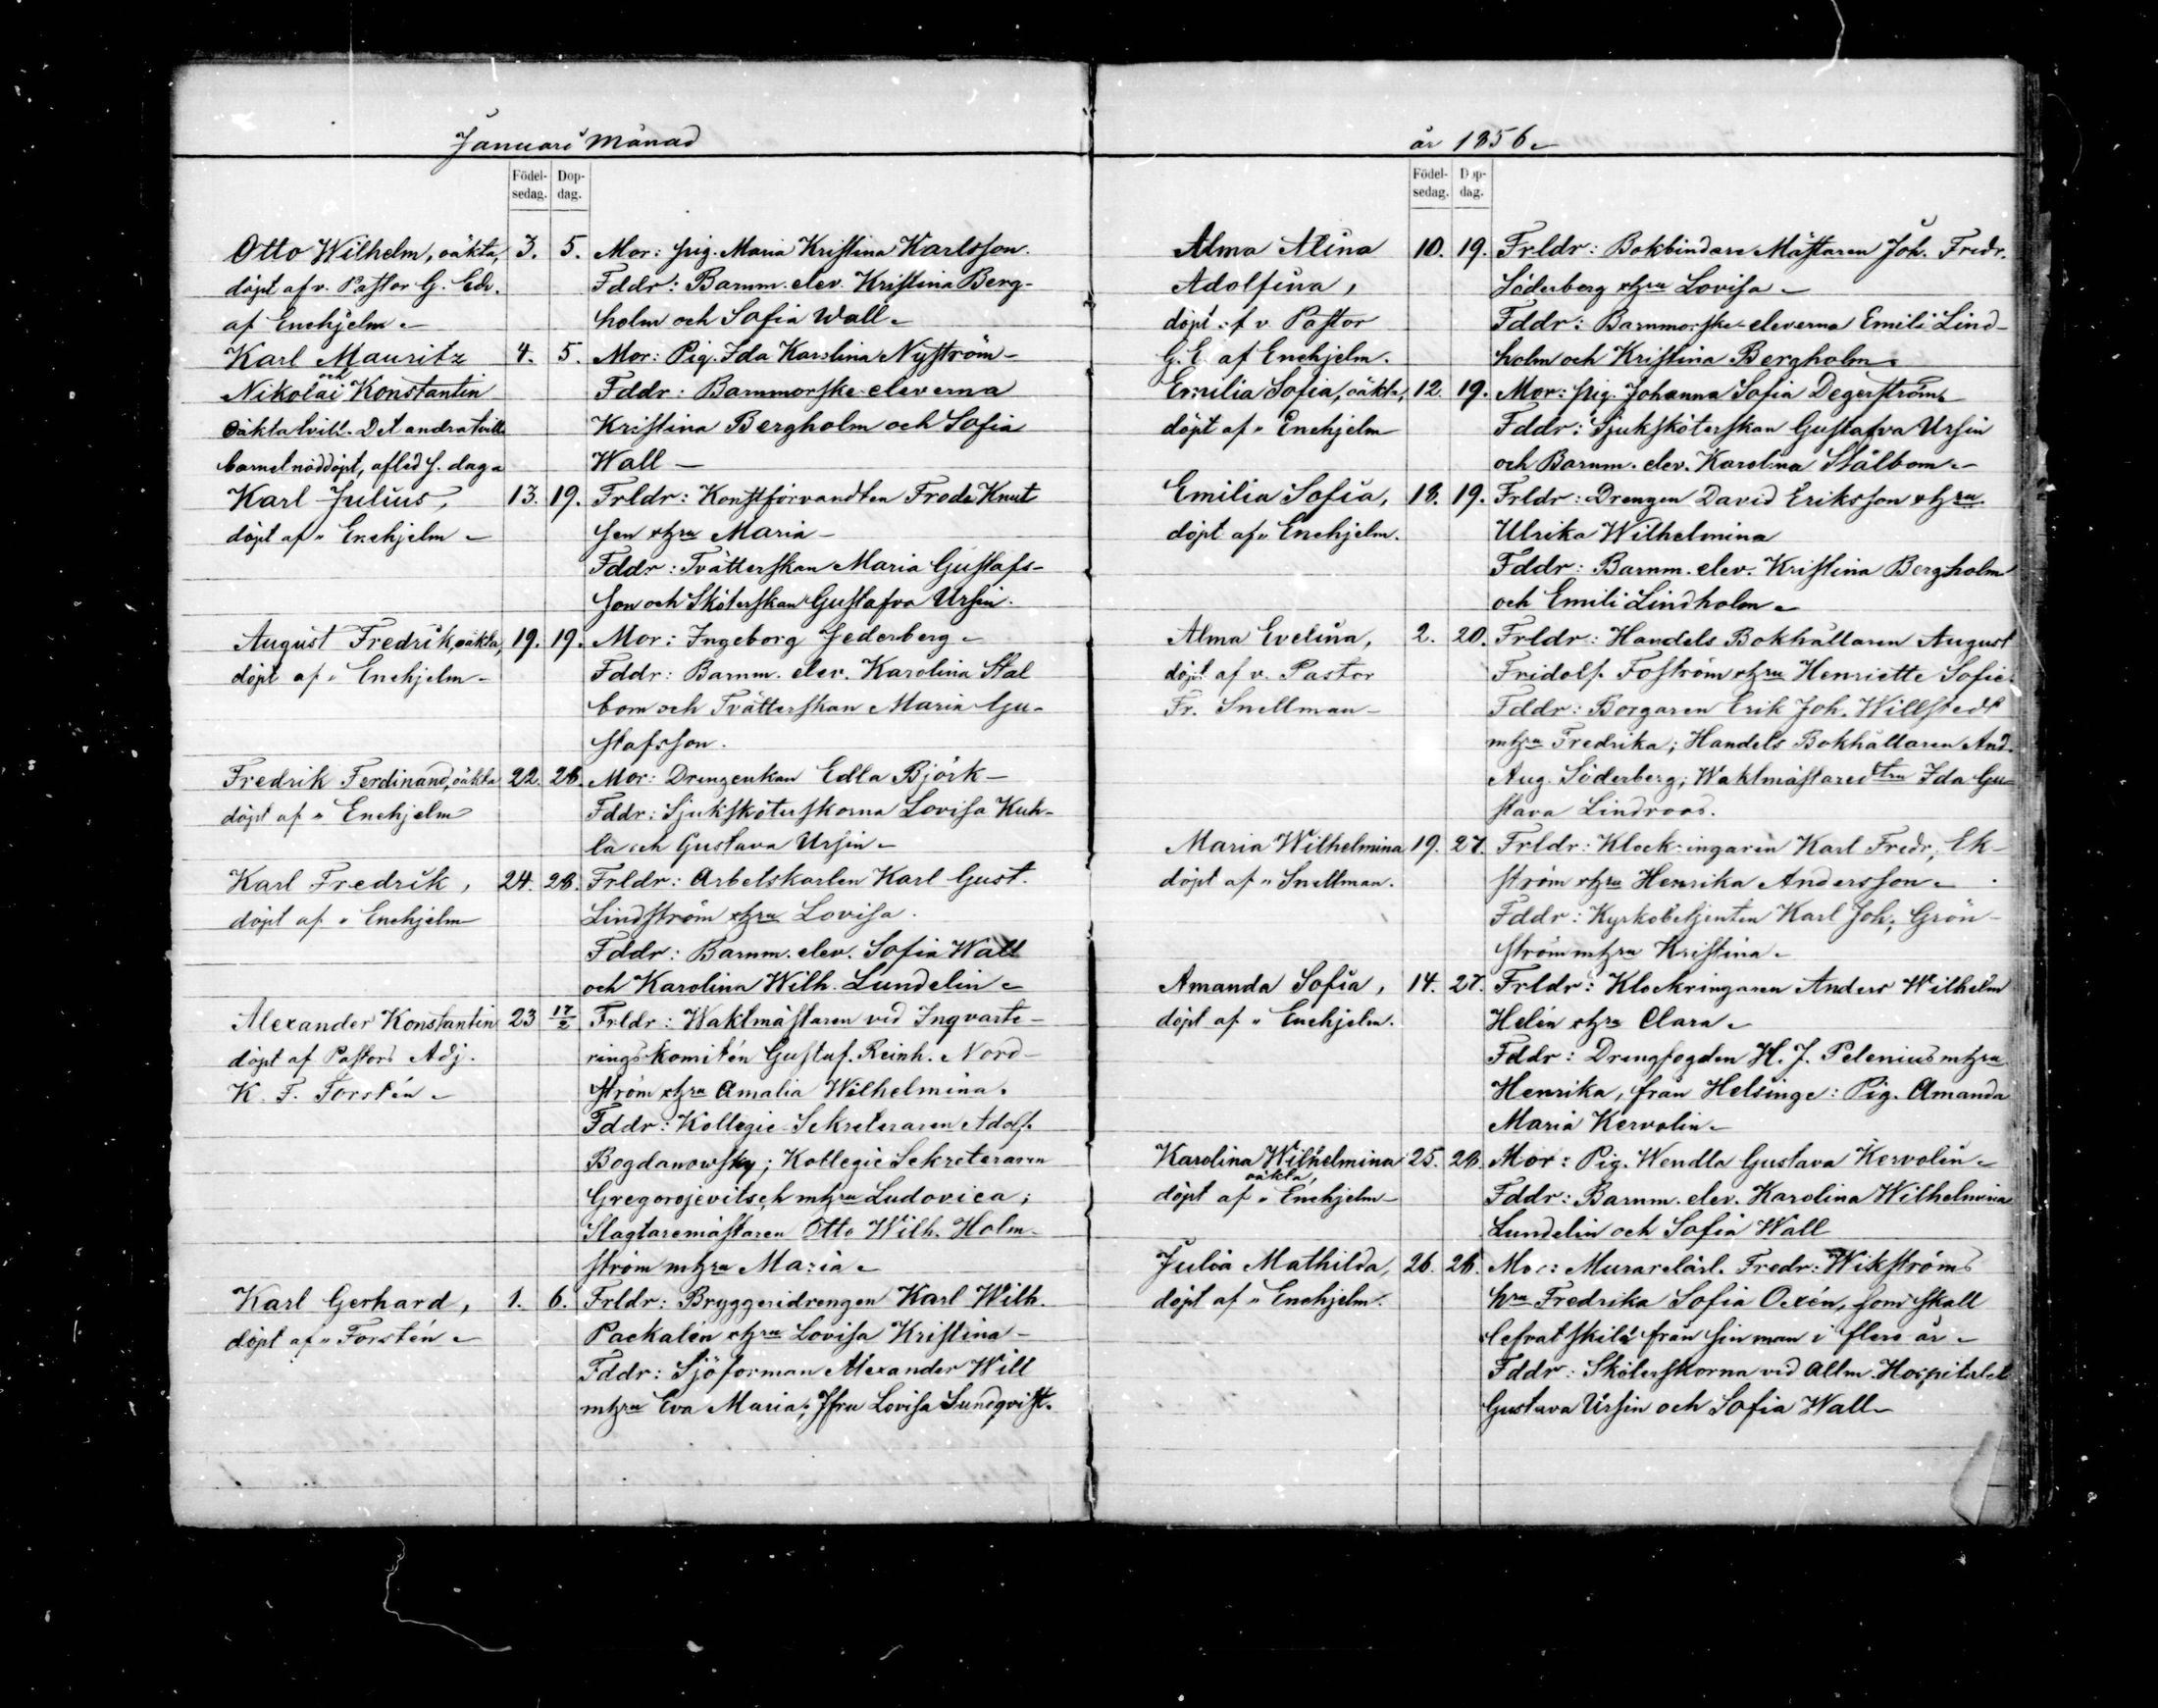 Januari Månad
Födel- Dop-
sedag. dag.
Otto Wilhelm, oäkta, 3. 5. Mor: pig. Maria Kristina Karlsson.
döpt af v. Pastor G. Edv. Fddr: Barnm. elev. Kristina Berg-
af Enehjelm holm och Sofia Wall
Karl Mauritz 4. 5. Mor: Pig. Ida Karolina Nyström
och
Nikolai Konstantin Fddr: Barnmorske-eleverna
oäkta tvill. Det andra tvill. Kristina Bergholm och Sofia
barnet nöddöpt, afled s. dag Wall
Karl Julius, 13. 19. Frldr: Konstförvandten Frode Knut
döpt af " Enehjelm sen o. h:ru Maria
Fddr: Tvätterskan Maria Gustafs-
son och Sköterskan Gustafva Ursin.
August Fredrik, oäkta, 19. 19. Mor: Ingeborg Jederberg
döpt af " Enehjelm Fddr: Barnm. elev. Karolina Stål
bom och Tvätterskan Maria Gu-
stafsson.
Fredrik Ferdinand, oäkta 22. 28. Mor: Drengenkan Edla Björk
döpt af " Enehjelm Fddr: Sjuksköterskorna Lovisa Kuh-
la och Gustava Ursin
Karl Fredrik, 24. 28. Frldr: Arbetskarlen Karl Gust.
döpt af " Enehjelm Lindström o. h:ru Lovisa.
Fddr: Barnm. elev. Sofia Wall
och Karolina Wilh. Lundelin
Alexander Konstantin 23 17/2 Frldr: Waktmästaren vid Inqvarte-
döpt af Pastors Adj. ringskomitén Gustaf Reinh. Nord-
K. F. Forstén ström o. h:ru Amalia Wilhelmina.
Fddr: Kollegie-Sekreteraren Adolf
Bogdanowsky; Kollegie Sekreteraren
Gregorojevitsch m. h:ru Ludovica;
Slagtaremästaren Otto Wilh. Holm-
ström m. h:ru Maria
Karl Gerhard, 1. 6. Frldr: Bryggeridrengen Karl Wilh.
döpt af " Forstén Packalén o. h:ru Lovisa Kristina
Fddr: Sjöforman Alexander Will
m. h:ru Eva Maria; Jfru Lovisa Sundqvist.
år 1856
Födel- Dop-
sedag. dag.
Alma Alina 10. 19. Frldr: Bokbindare Mästaren Joh. Fredr.
Adolfina, Söderberg o. h:ru Lovisa
döpt af v. Pastor Fddr: Barnmorske-eleverna Emili Lind-
G. E. af Enehjelm. holm och Kristina Bergholm
Emilia Sofia, oäkta, 12. 19. Mor: pig. Johanna Sofia Degerström
döpt af " Enehjelm Fddr: Sjuksköterskan Gustafva Ursin
och Barnm. elev. Karolina Stålbom
Emilia Sofia, 18. 19. Frldr: Drengen David Eriksson o. h:ru
döpt af " Enehjelm. Ulrika Wilhelmina
Fddr: Barnm. elev. Kristina Bergholm
och Emili Lindholm
Alma Evelina, 2. 20. Frldr: Handels Bokhållaren August
döpt af v. Pastor Fridolf Foström o. h:ru Henriette Sofie
Fr. Snellman Fddr: Borgaren Erik Joh. Willstedt
m. h:ru Fredrika; Handels Bokhållaren And.
Aug. Söderberg; Waktmästared:tra Ida Gu-
stava Lindroos.
Maria Wilhelmina 19. 27. Frldr: Klockringaren Karl Fredr. Ek-
döpt af " Snellman. ström o. h:ru Henrika Andersson
Fddr: Kyrkobetjenten Karl Joh. Grön-
ström m. h:ru Kristina
Amanda Sofia, 14. 27. Frldr: Klockringaren Anders Wilhelm
döpt af " Enehjelm. Helén o. h:ru Clara
Fddr: Drengfogden H. J. Pelenius m. h:ru
Henrika, från Helsinge: Pig. Amanda
Maria Kervolin
Karolina Wilhelmina 25. 28. Mor: Pig. Wendla Gustava Kervolin
oäkta,
döpt af " Enehjelm Fddr: Barnm. elev. Karolina Wilhelmina
Lundelin och Sofia Wall
Julia Mathilda, 26. 28. Mor: Murarelärl. Fredr: Wikströms
döpt af " Enehjelm. h:ru Fredrika Sofia Oxén, som skall
lefvat skild från sin man i flere år
Fddr: Sköterskorna vid Allm. Hospitalet
Gustava Ursin och Sofia Wall